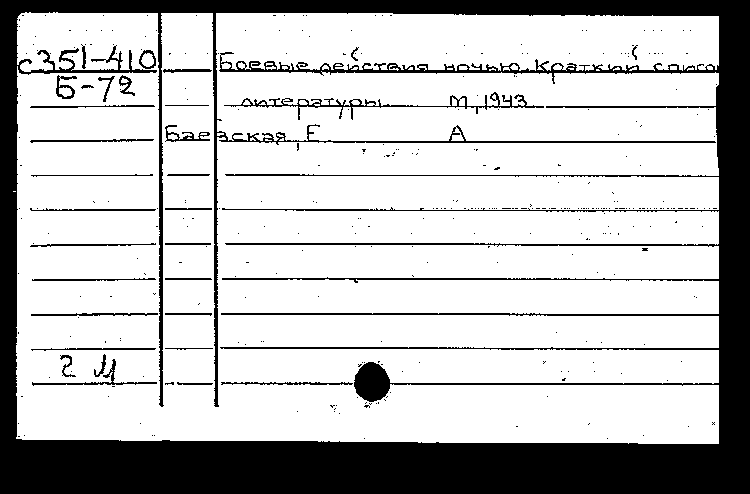 с351-410 Боевые действия ночью. Краткий списо
Б-72
литературы М, 1943
Баевская, Е А
2 М